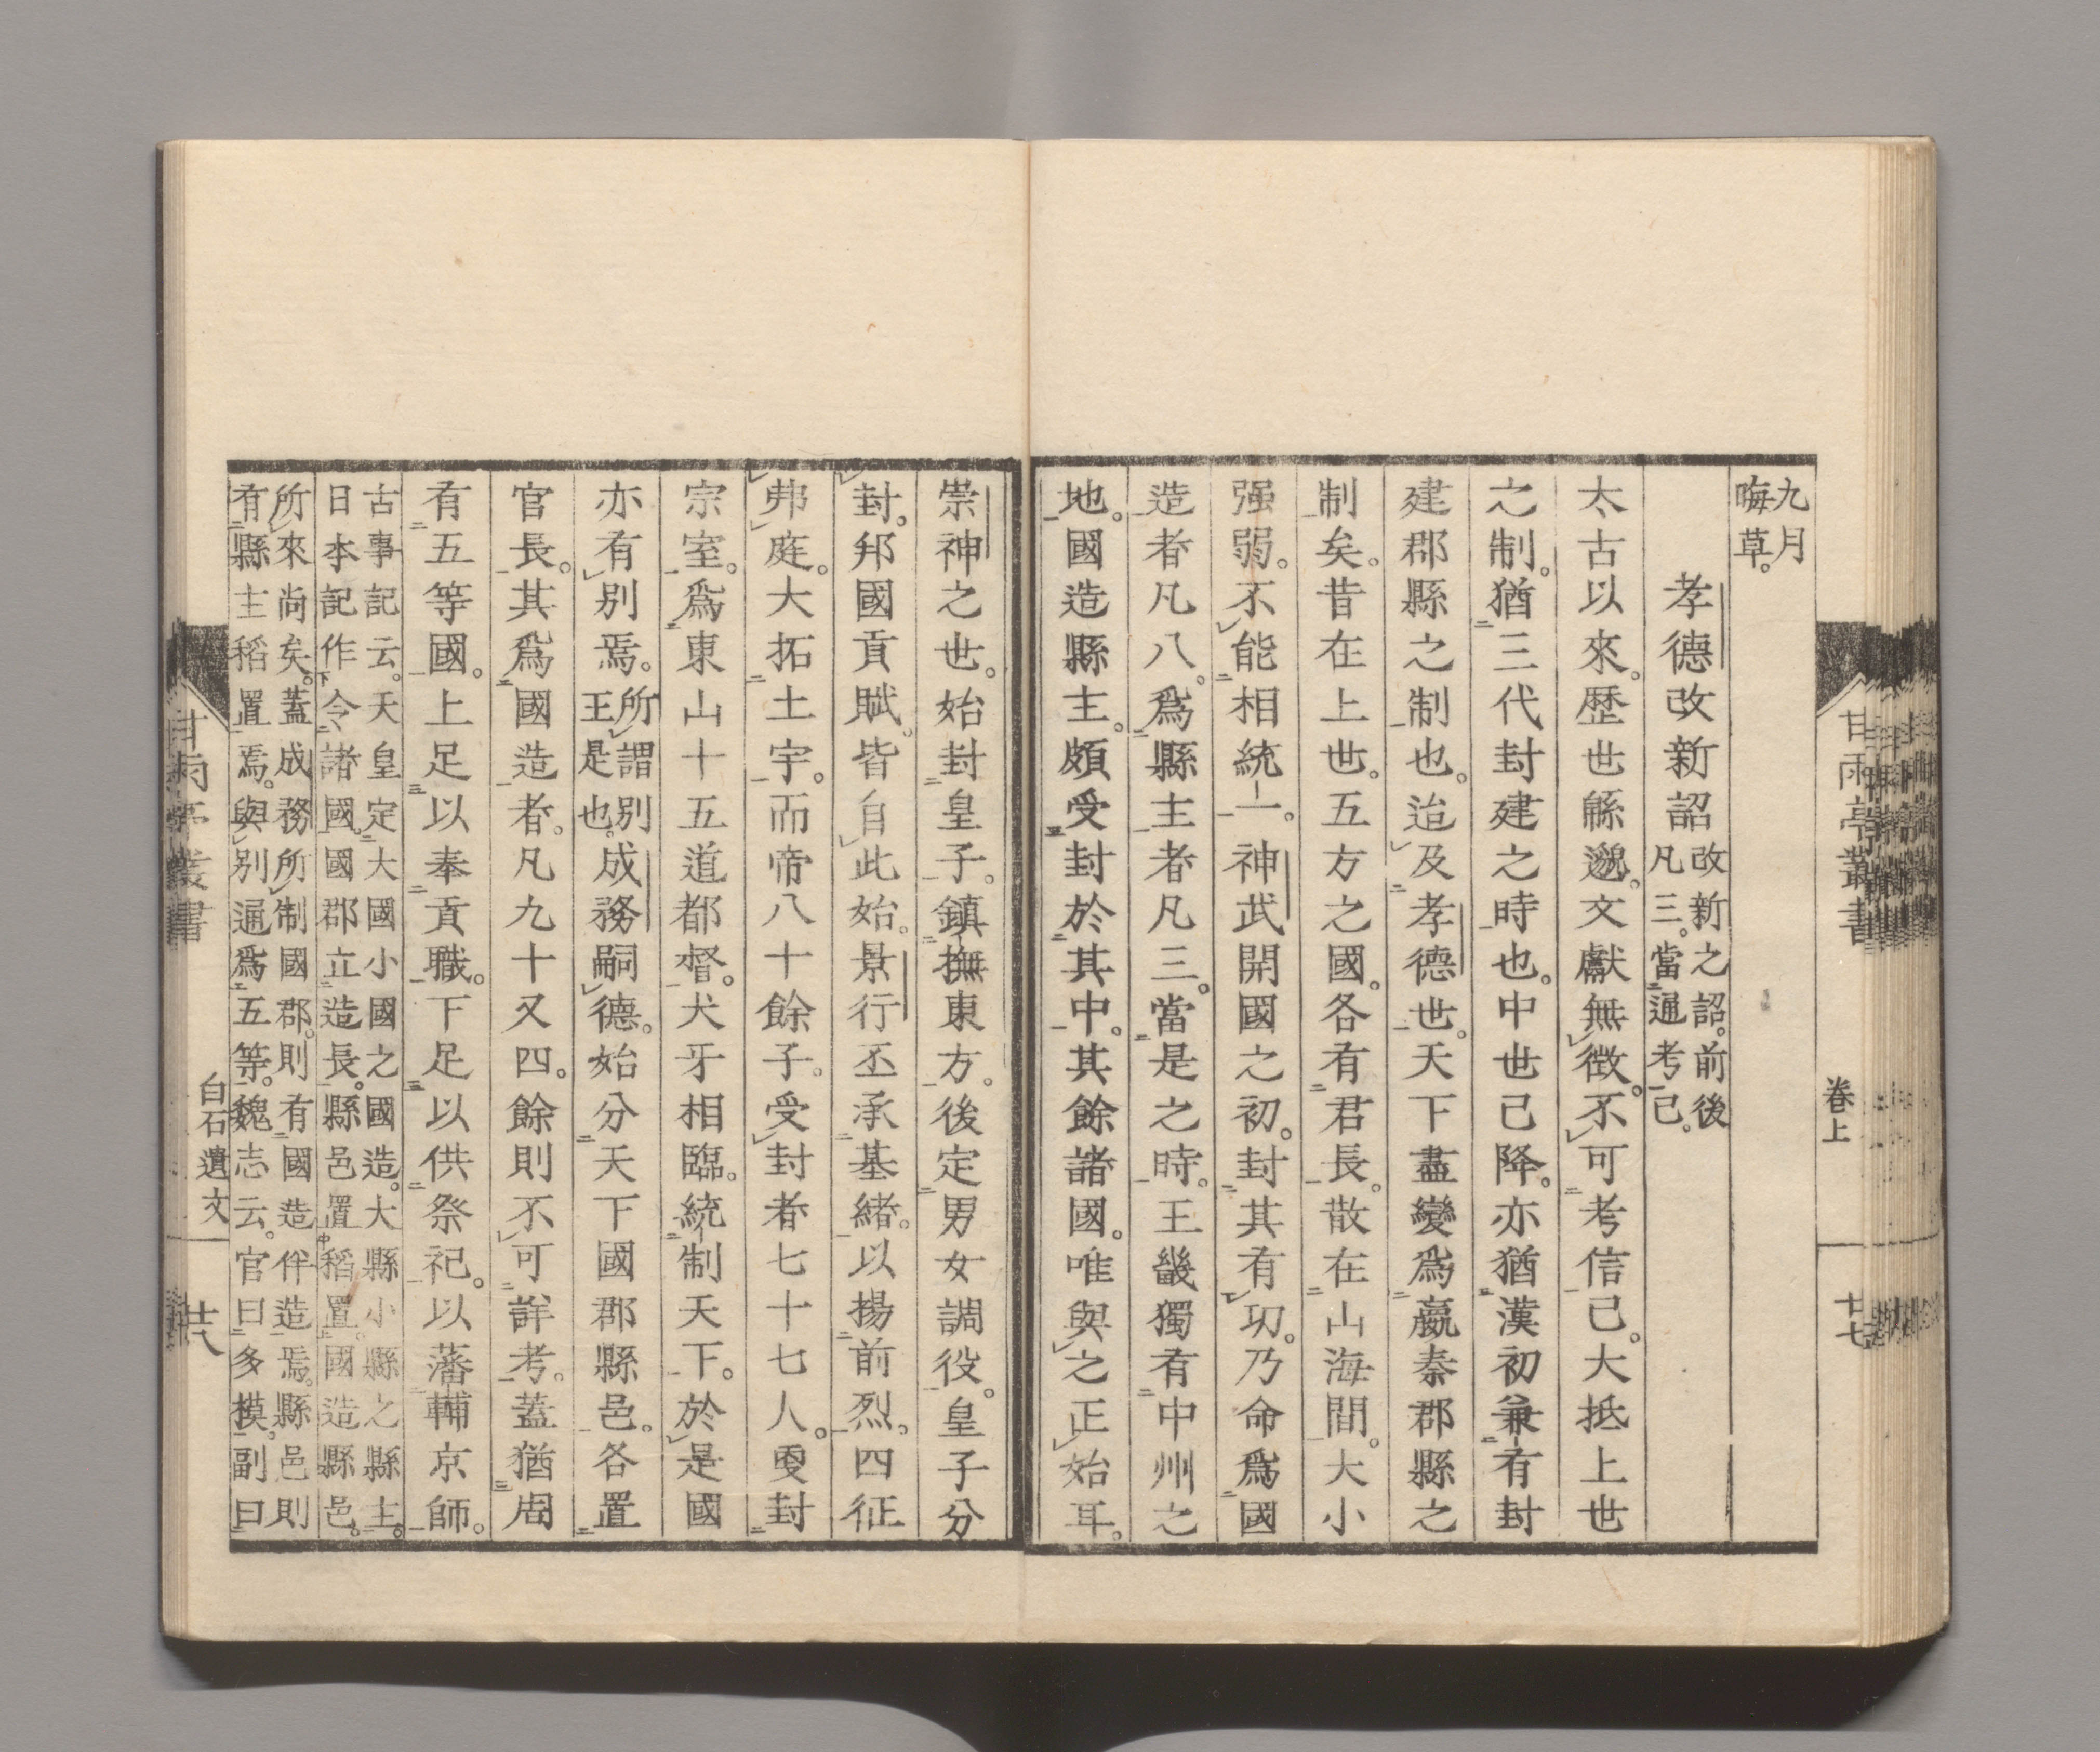 九月
晦草。
孝德改新詔
改新之詔。前後
凡三。當通考已。
太古以來。歷世緜邈。文獻無徵。不可考信已。大抵上世
之制。猶三代封建之時也。中世已降。亦猶漢初兼有封
建郡縣之制也。迨及孝德世。天下盡變爲嬴秦郡縣之
制矣。昔在上世。五方之國。各有君長。散在山海間。大小
强弱。不能相統一。神武開國之初。封其有功。乃命爲國
造者凡八。爲縣主者凡三。當是之時。王畿獨有中州之
地。國造縣主。頗受封於其中。其餘諸國。唯與之正始耳。
甘雨亭叢書
卷上
十七
崇神之世。始封皇子。鎮撫東方。後定男女調役。皇子分
封。邦國貢賦。皆自此始。景行丕承基緒。以揚前烈。四征
弗庭。大拓土宇。而帝八十餘子。受封者七十七人。更封
宗室。爲東山十五道都督。犬牙相臨。統制天下。於是國
亦有別焉。
所謂別
王是也。
成務嗣德。始分天下國郡縣邑。各置
官長。其爲國造者。凡九十又四。餘則不可詳考。蓋猶周
有五等國。上足以奉貢職。下足以供祭祀。以藩輔京師。
古事記云。天皇定大國小國之國造。大縣小縣之縣主。
日本記作令諸國。國郡立造長。縣邑置稻置。國造縣邑。
所來尚矣。蓋成務所制國郡。則有國造伴造焉。縣邑則
有縣主稻置焉。與別通爲五等。魏志云。官曰多模。副曰
甘雨亭叢書
白石遺文
廿八